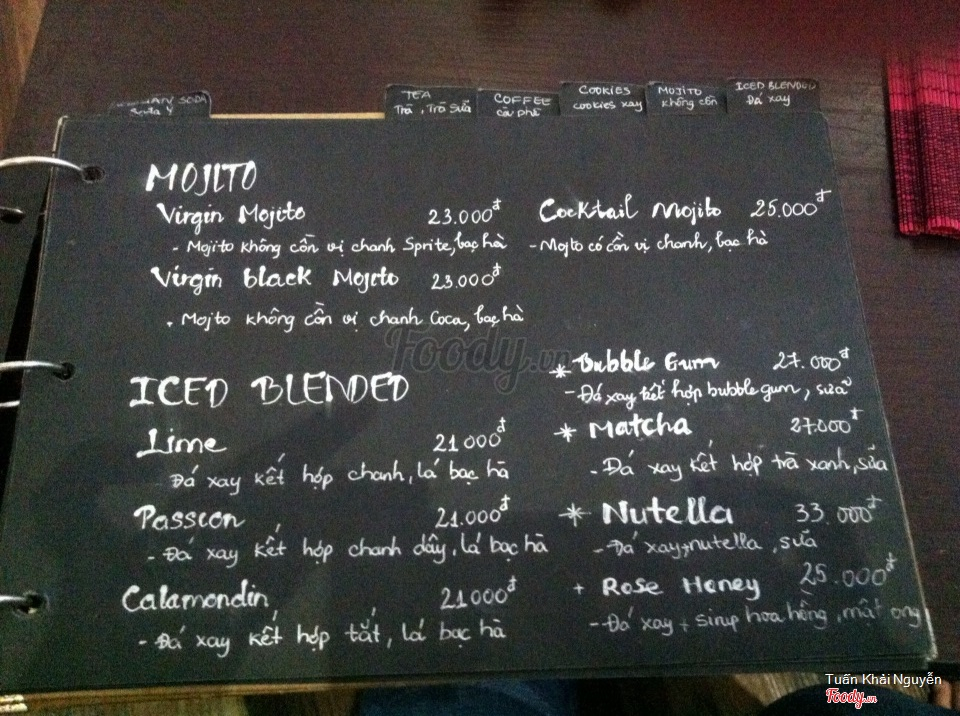 SODA
Soda Ý
TEA
Trà, Trà Sữa
COFFEE
cà phê
COOKIES
cookies xay
MOJITO
không cồn
ICED BLENDED
Đá xay
MOJITO
Virgin Mojito 23.000đ
- Mojito không cồn vị chanh Sprite, bạc hà
Virgin black Mojito 23.000đ
. Mojto không cồn vị chanh Coca, bạc hà
Cocktail Mojito 25.000đ
- Mojto có cồn vị chanh, bạc hà
ICED BLENDED
Lime 21000đ
Đá xay kết hợp chanh, lá bạc hà
Passion 21.000đ
- Đá xay kết hợp chanh dây, lá bạc hà
Calamondin 21000đ
- Đá xay kết hợp tắt, lá bạc hà
* Bubble Gum 27.000đ
- Đá xay kết hợp bubble gum, sữa
* Matcha 27.000đ
- Đá xay kết hợp trà xanh, sữa
* Nutella 33.000đ
- Đá xay + nutella, sữa
+ Rose Honey 25.000đ
- Đá xay + sirup hoa hồng, mật ong
Foody.vn
Tuấn Khải Nguyễn
Foody.vn